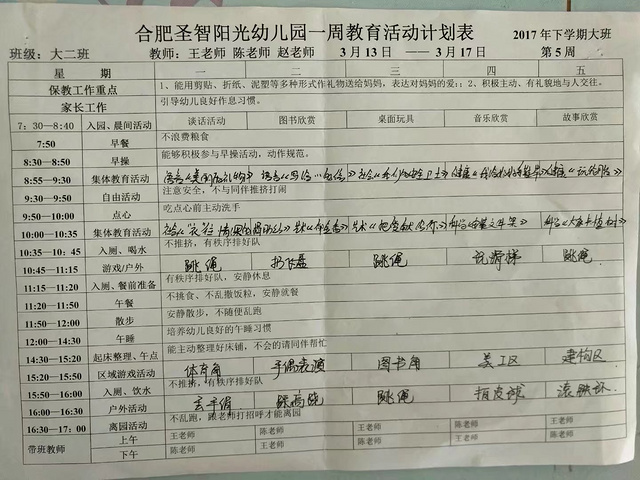 合肥圣智阳光幼儿园一周教育活动计划表 2017年下学期大班
班级：大二班 教师：王老师 陈老师 赵老师 3月13日 —— 3月17日 第5周
星 期 一 二 三 四 五
保教工作重点 1、能用剪贴、折纸、泥塑等多种形式作礼物送给妈妈，表达对妈妈的爱；2、积极主动、有礼貌地与人交往。
家长工作 引导幼儿良好作息习惯。
7：30—8:40 入园、晨间活动 谈话活动 图书欣赏 桌面玩具 音乐欣赏 故事欣赏
7:50 早餐 不浪费粮食
8:30—8:50 早操 能够积极参与早操活动，动作规范。
8:55—9:30 集体教育活动
9:30—9:50 自由活动 注意安全，不与同伴推挤打闹
9:50—10:00 点心 吃点心前主动洗手
10:00—10:35 集体教育活动
10:35—10：45 入厕、喝水 不推挤，有秩序排好队
10:45—11:15 游戏/户外 跳绳 跳绳 跳绳
11:15—11:20 入厕、餐前准备 有秩序排好队，安静休息
11:20—11:50 午餐 不挑食、不乱撒饭粒，安静就餐
11:50—12:00 散步 安静散步，不随便乱跑
12:00—14:30 午睡 培养幼儿良好的午睡习惯
14:30—15:20 起床整理、午点 能主动整理好床铺，不会的请同伴帮忙
15:20—15:50 区域游戏活动 体育角 手偶表演 图书角 美工区 建构区
15:50—16:00 入厕、饮水 不推挤，有秩序排好队
16:00—16:30 户外活动 踩高跷 跳绳 拍皮球 滚铁环
16:30—17：00 离园活动 不乱跑，跟老师打招呼才能离园
带班教师 上午 王老师 陈老师 王老师 陈老师 王老师
下午 陈老师 王老师 陈老师 王老师 陈老师